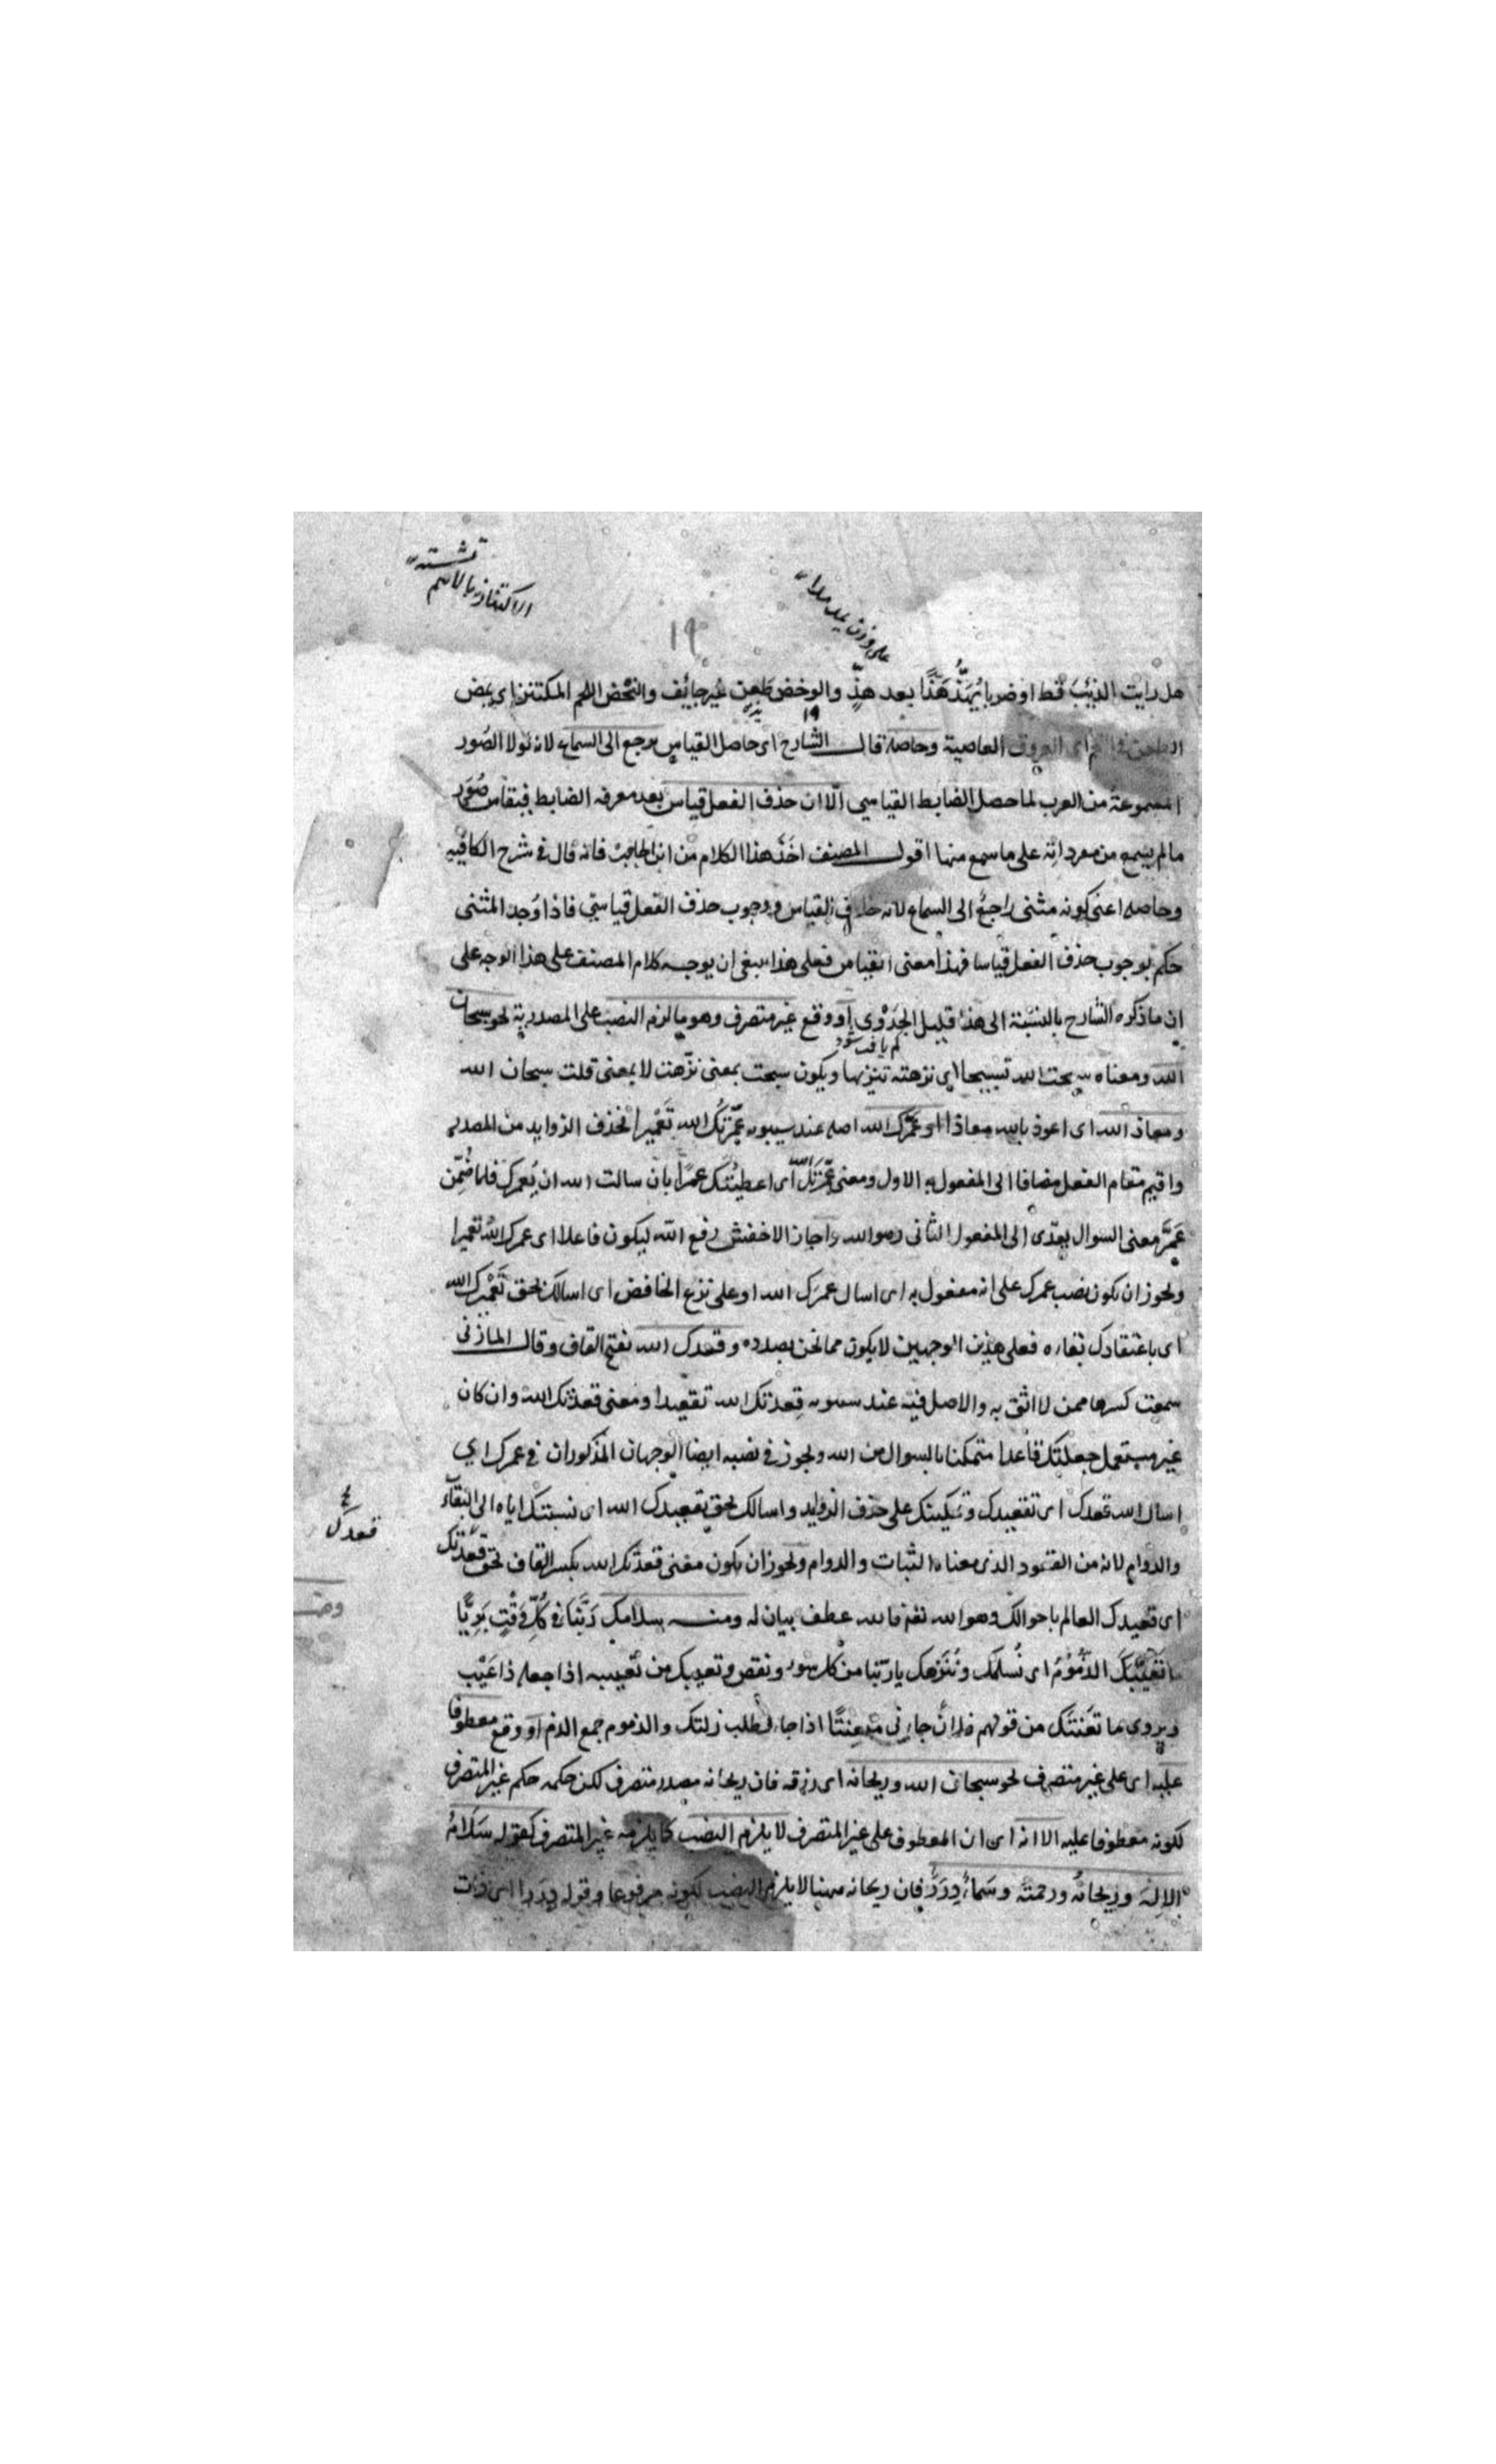 على وزن يمد مدا
الاكتناز بالاسم
١٩
هل رايت الذئب قط او ضربا يُهَذُّ هَذًّا بعد هذٍّ والوخض طعن غير جايف والنحض اللحم المكتنز اى يمض
اى العروق العاصية وحاصله قال الشارح اى حاصل القياس يرجع الى السماع لانه لولا الصور
المسموعة من العرب لما حصل الضابط القياسي الا ان حذف الفعل قياس بعد معرفه الضابط فيقاس صُوَر
ما لم يسمع من مفرداته على ما سمع منها اقول المصنف اخذ هذا الكلام من ابن الحاجب فانه قال في شرح الكافيه
وحاصله اعنى كونه مثنى راجع الى السماع لانه القياس ووجوب حذف الفعل قياسي فاذا وُجد المثنى
حكم بوجوب حذف الفعل قياسا فهذا معنى القياس فعلى هذا ينبغى ان يوجه كلام المصنف على هذا الوجه على
ان ما ذكره الشارح بالنسبة الى هذا قليل الجَدْوٰى او وقع غير متصرف وهو ما لزم النصب على المصدرية نحو سبحان
الله ومعناه سبحت الله تسبيحا اى نزهته تنزيها ويكون سبحت بمعنى نزّهت لا بمعنى قلت سبحان الله
ومعاذ الله اى اعوذ بالله معاذا او عَمْرَك الله اصله عند سيبويه عَمَّرْتُك الله تَعْميرا فحذف الزوايد من المصدر
واقيم مقام الفعل مضافا الى المفعول به الاول ومعنى عَمَّرْتُك الله اى اعطيتُك عمرًا بان سالت الله ان يُعمرك فلما ضُمِّن
عَمَّرَ معنى السوال يعدّى الى المفعول الثانى وهو الله واجاز الاخفش رفع الله ليكون فاعلا اى عمرك الله تعميرا
ويجوز ان يكون نصب عمرك على انه مفعول به اى اسال عمرَك الله او على نزع الخافض اى اسالك بحق تَعْمِيْرك الله
اى باعتقادك بقاءه فعلى هذين الوجهين لا يكون مما نحن بصدده وقعدك الله بفتح القاف وقال المازنى
سمعت كسرها ممن لا اثق به والاصل فيه عند سيبويه قعدتك الله تقعيدا ومعنى قعدتك الله وان كان
غير مستعمل جعلتك قاعدا متمكنا بالسوال من الله ويجوز في نصبه ايضا الوجهان المذكوران في عمرك اي
اسال الله قعدك اى تقعيدك وتمكينك على حذف الزوايد واسالك بحق تقعيدك الله اى نسبتك اياه الى البقاء
قعدك
والدوام لانه من القعود الذى معناه الثبات والدوام ويجوز ان يكون معنى قعدتك الله بكسر القاف بحق قعدتك
اى قعيدك العالم باحوالك وهو الله تعالى فالله عطف بيان له ومنه سلامك رَبَّنَا فى كُلِّ وَقْتٍ بَرِيًّا
ما تَعَيَّبَكَ الذُّمُوْمُ اى نُسلمك ونُنَزهك يا ربّنا من كل سوء ونقص وتعيبك من تعييبه اذا جعله ذا عَيْبٍ
ويروى ما تعَنتَك من قولهم فلان جاءنى متعنتًا اذا جاء يطلب زلتك والذموم جمع الذم او وقع معطوفا
عليه اى على غير متصرف نحو سبحان الله وريحانه اى رزقه فان ريحانه مصدر متصرف لكن حكمه حكم غير المتصرف
لكونه معطوفا عليه الا انه اى ان المعطوف على غير المتصرف لا يلزم النصب كما يلزمه غير المتصرف كقوله سَلَامُ
الاله وريحانُه ورحمته وسَماءٌ دِرَرٌ فان ريحانه ههنا لا يلزم النصب لكونه مرفوعا وقوله دررا اى ذات